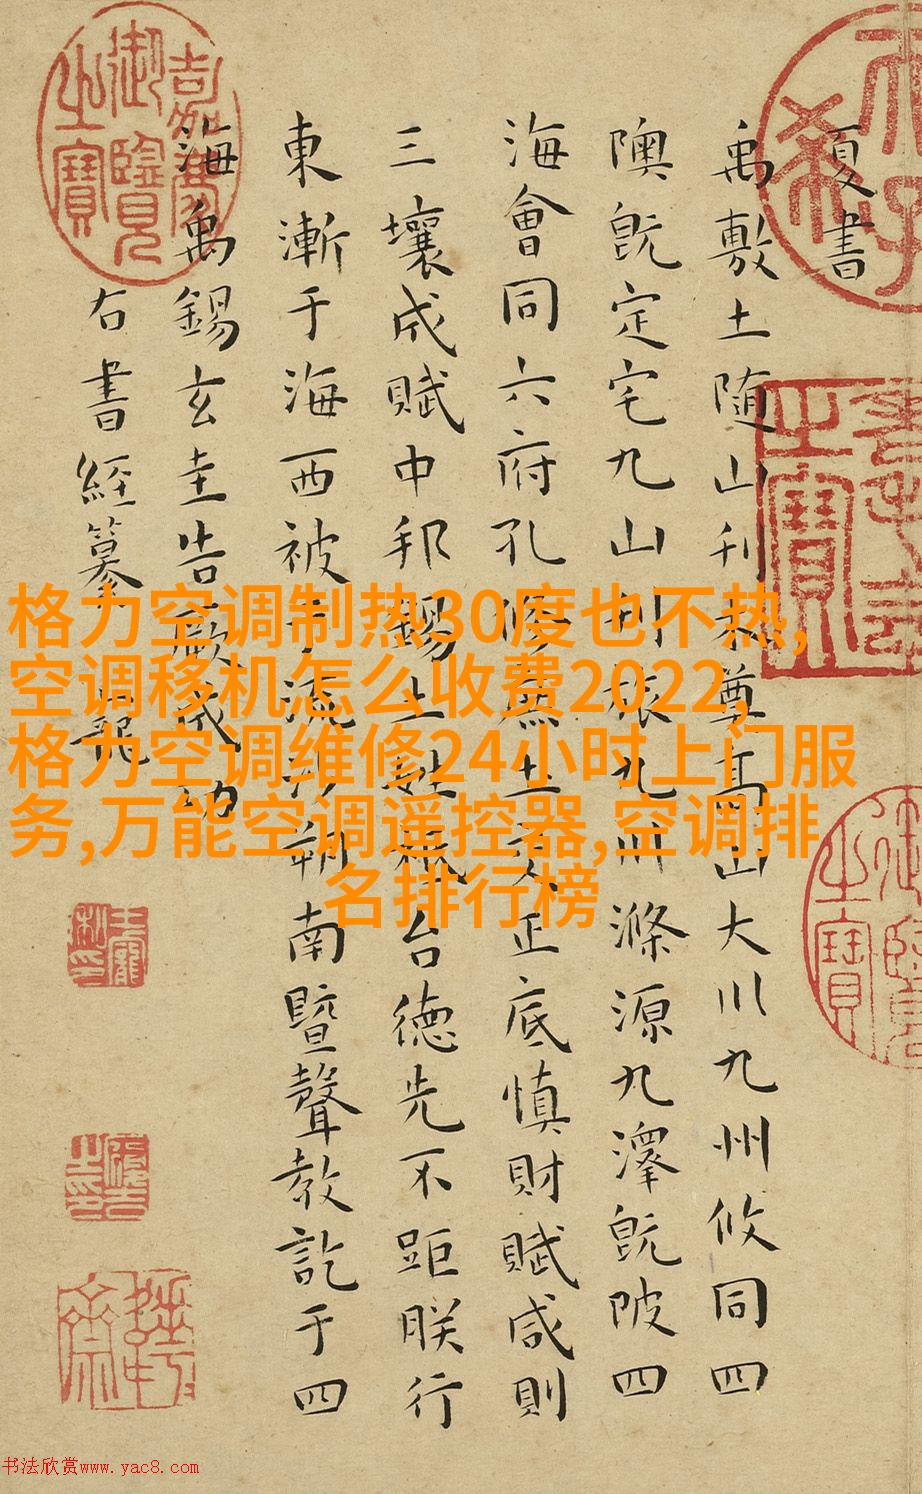 夏書
禹敷土随山刊木尊髙山大川九州攸同四
隩既定宅九山刊旅九川滌源九澤既陂四
海會同六府孔修庶土交正底慎財賦咸則
三壤成賦中邦錫土姓祗台德先不距朕行
東漸于海西被于流沙朔南暨聲教訖于四
海禹錫玄圭告厥成功
右書經篡 王寵
嘉慶御覽之寶
格力空调制热30度也不热,
空调移机怎么收费2022,
格力空调维修24小时上门服
务,万能空调遥控器,空调排
名排行榜
书法欣赏www.yac8.com